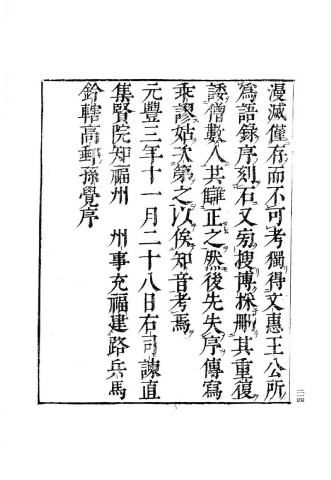 漫滅僅存而不可考獨得文惠王公所
爲語錄序刻石又旁搜博採刪其重復
諉僧數人其讎正之然後先失序傳寫
乖謬姑大第之以俟知音考焉
元豐三年十一月二十八日右司諫直
集賢院知福州 州事充福建路兵馬
鈐轄高郵孫覺序
二四